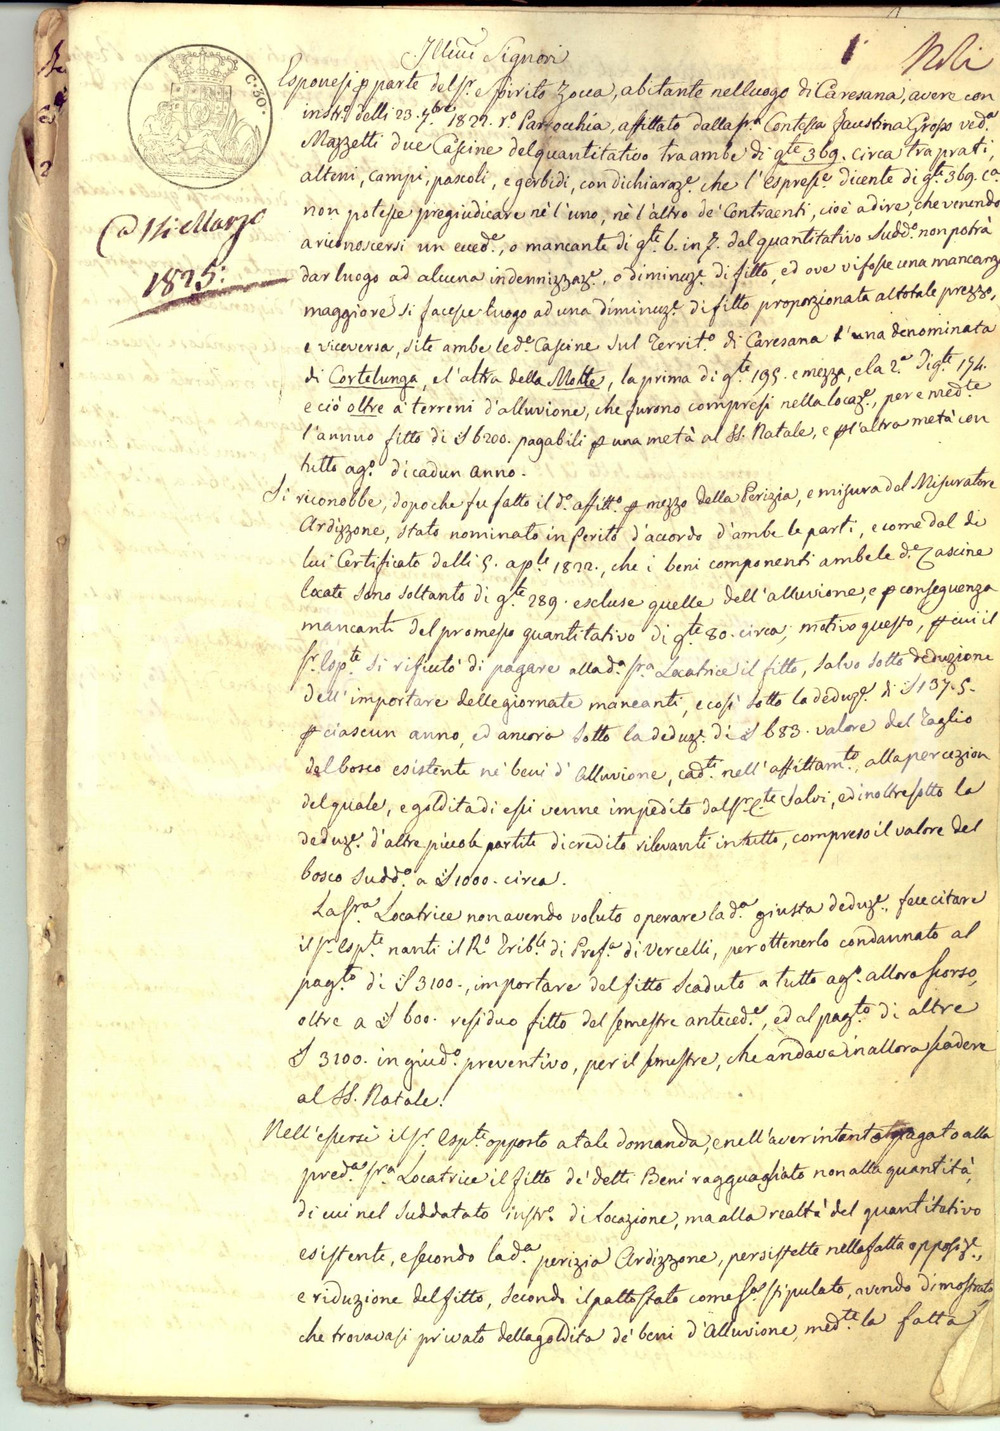 1
Noli
Ill.mi Signori
C. 50.
Esponesi p parte del Sr. Spirito Zocca, abitante nel luogo di Caresana, avere con
instr.o delli 23. 7bre 1822. r.o Parrocchia, affittato dalla Sra. Contessa Faustina Grosso ved.a
Mazzetti due Cascine del quantitativo tra ambe di g.te 369. circa tra prati,
alteni, campi, pascoli, e gerbidi, con dichiaraz.e che l'espress.e dicente di g.te 369. c.a
non potesse pregiudicare nè l'uno, nè l'altro de' Contraenti, cioè a dire, che venendo
a riconoscersi unecced.e, o mancante di g.te 6. in 7. dal quantitativo Sudd.o non potrà
dar luogo ad alcuna indennizzaz.e, o diminuz.e di fitto, ed ove vi fosse una mancanza
maggiore si facesse luogo ad una diminuz.e di fitto proporzionata al totale prezzo,
e viceversa, site ambe le d.e Cascine sul Territ.o di Caresana l'una denominata
di Cortelunga, e l'altra della Motte, la prima di g.te 195. e mezza, e la 2.a di g.te 174.
e ciò oltre a' terreni d'alluvione, che furono compresi nella locaz.e, per e med.te
l'annuo fitto di £ 6200. pagabili p una metà al SS. Natale, e p l'altra metà con
tutto ag.o di cadun anno.
Cd 14 Marzo
1825:
Si riconobbe, dopo che fu fatto il d.o affitt.o p mezzo della Perizia, e misura del Misuratore
Ardizzone, stato nominato in Perito d'accordo d'ambe le parti, e come dal di
lui Certificato delli 5. ap.le 1822., che i beni componenti ambe le d.e Cascine
locate sono soltanto di g.te 289. escluse quelle dell'alluvione, e p conseguenza
mancanti del promesso quantitativo di g.te 80. circa; motivo questo, p cui il
Sr. Esp.te si rifiutò di pagare alla d.a Sra. Locatrice il fitto, salvo sotto deduzione
dell'importare delle giornate mancanti, e così sotto la deduz.e di £ 137. 5.
p ciascun anno, ed ancora sotto la deduz.e di £ 683. valore del Taglio
del bosco esistente nè beni d'Alluvione, cad.ti nell'affittam.to, alla percezion
del quale, e goldita di essi venne impedito dal Sr. C.te Salvi, ed inoltre sotto la
deduz.e d'altre piccole partite di credito rilevanti in tutto, compreso il valore del
bosco Sudd.o a £ 1000. circa.
La Sra. Locatrice non avendo voluto operare la d.a giusta deduz.e, fece citare
il Sr. Esp.te nanti il R.o Trib.le di Pref.a di Vercelli, per ottenerlo condannato al
pag.to di £ 3100., importare del fitto scaduto a tutto ag.o allora scorso,
oltre a £ 600. residuo fitto del semestre anteced.e, ed al pag.to di altre
£ 3100. in giud.o preventivo, per il semestre, che andava in allora scadere
al SS. Natale.
Nell'essersi il Sr. Esp.te opposto a tale domanda, e nell'aver intento pagato alla
pred.a Sra. Locatrice il fitto de' detti Beni ragguagliato non alla quantità,
di cui nel suddatato instr.o di Locazione, ma alla realtà del quantitativo
esistente, e secondo la d.a perizia Ardizzone, persistette nella fatta opposiz.e,
e riduzione del fitto, secondo il patto stato come Sa. stipulato, avendo dimostrato,
che trovavasi privato della goldita de' beni d'Alluvione, med.te la fatta